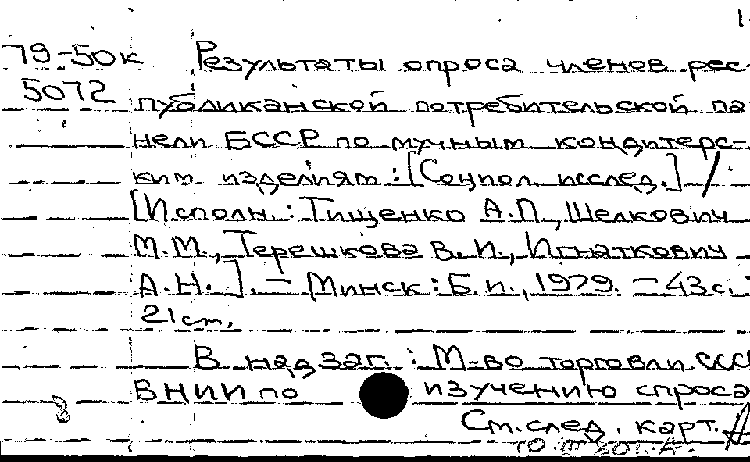 79-50к Результаты опроса членов рес-
5072 публиканской потребительской па
нели БССР по мучным кондитерс-
ким изделиям : [Социол. исслед.] /
[Исполн. : Тищенко А.П., Шелкович
М.М., Терешкова В.И., Игнаткович
А.Н.]. - Минск : Б.и., 1979. - 43 с. ;
21 см.
В надзаг. : М-во торговли ССС
ВНИИ по изучению спроса
См. след. карт.